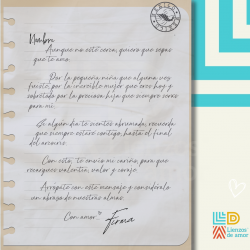 Nombre
Aunque no esté cerca, quiero que sepas
que te amo.
Por la pequeña niña que alguna vez
fuiste, por la increíble mujer que eres hoy y
sobretodo por la preciosa hija que siempre serás
para mí.
Si algún día te sientes abrumada, recuerda
que siempre estaré contigo, hasta el final
del arcoiris.
Con esto, te envío mi cariño, para que
recargues valentía, valor y coraje.
Arrópate con este mensaje y considéralo
un abrazo de nuestras almas.
Con amor
Firma
LD
Lienzos
de amor